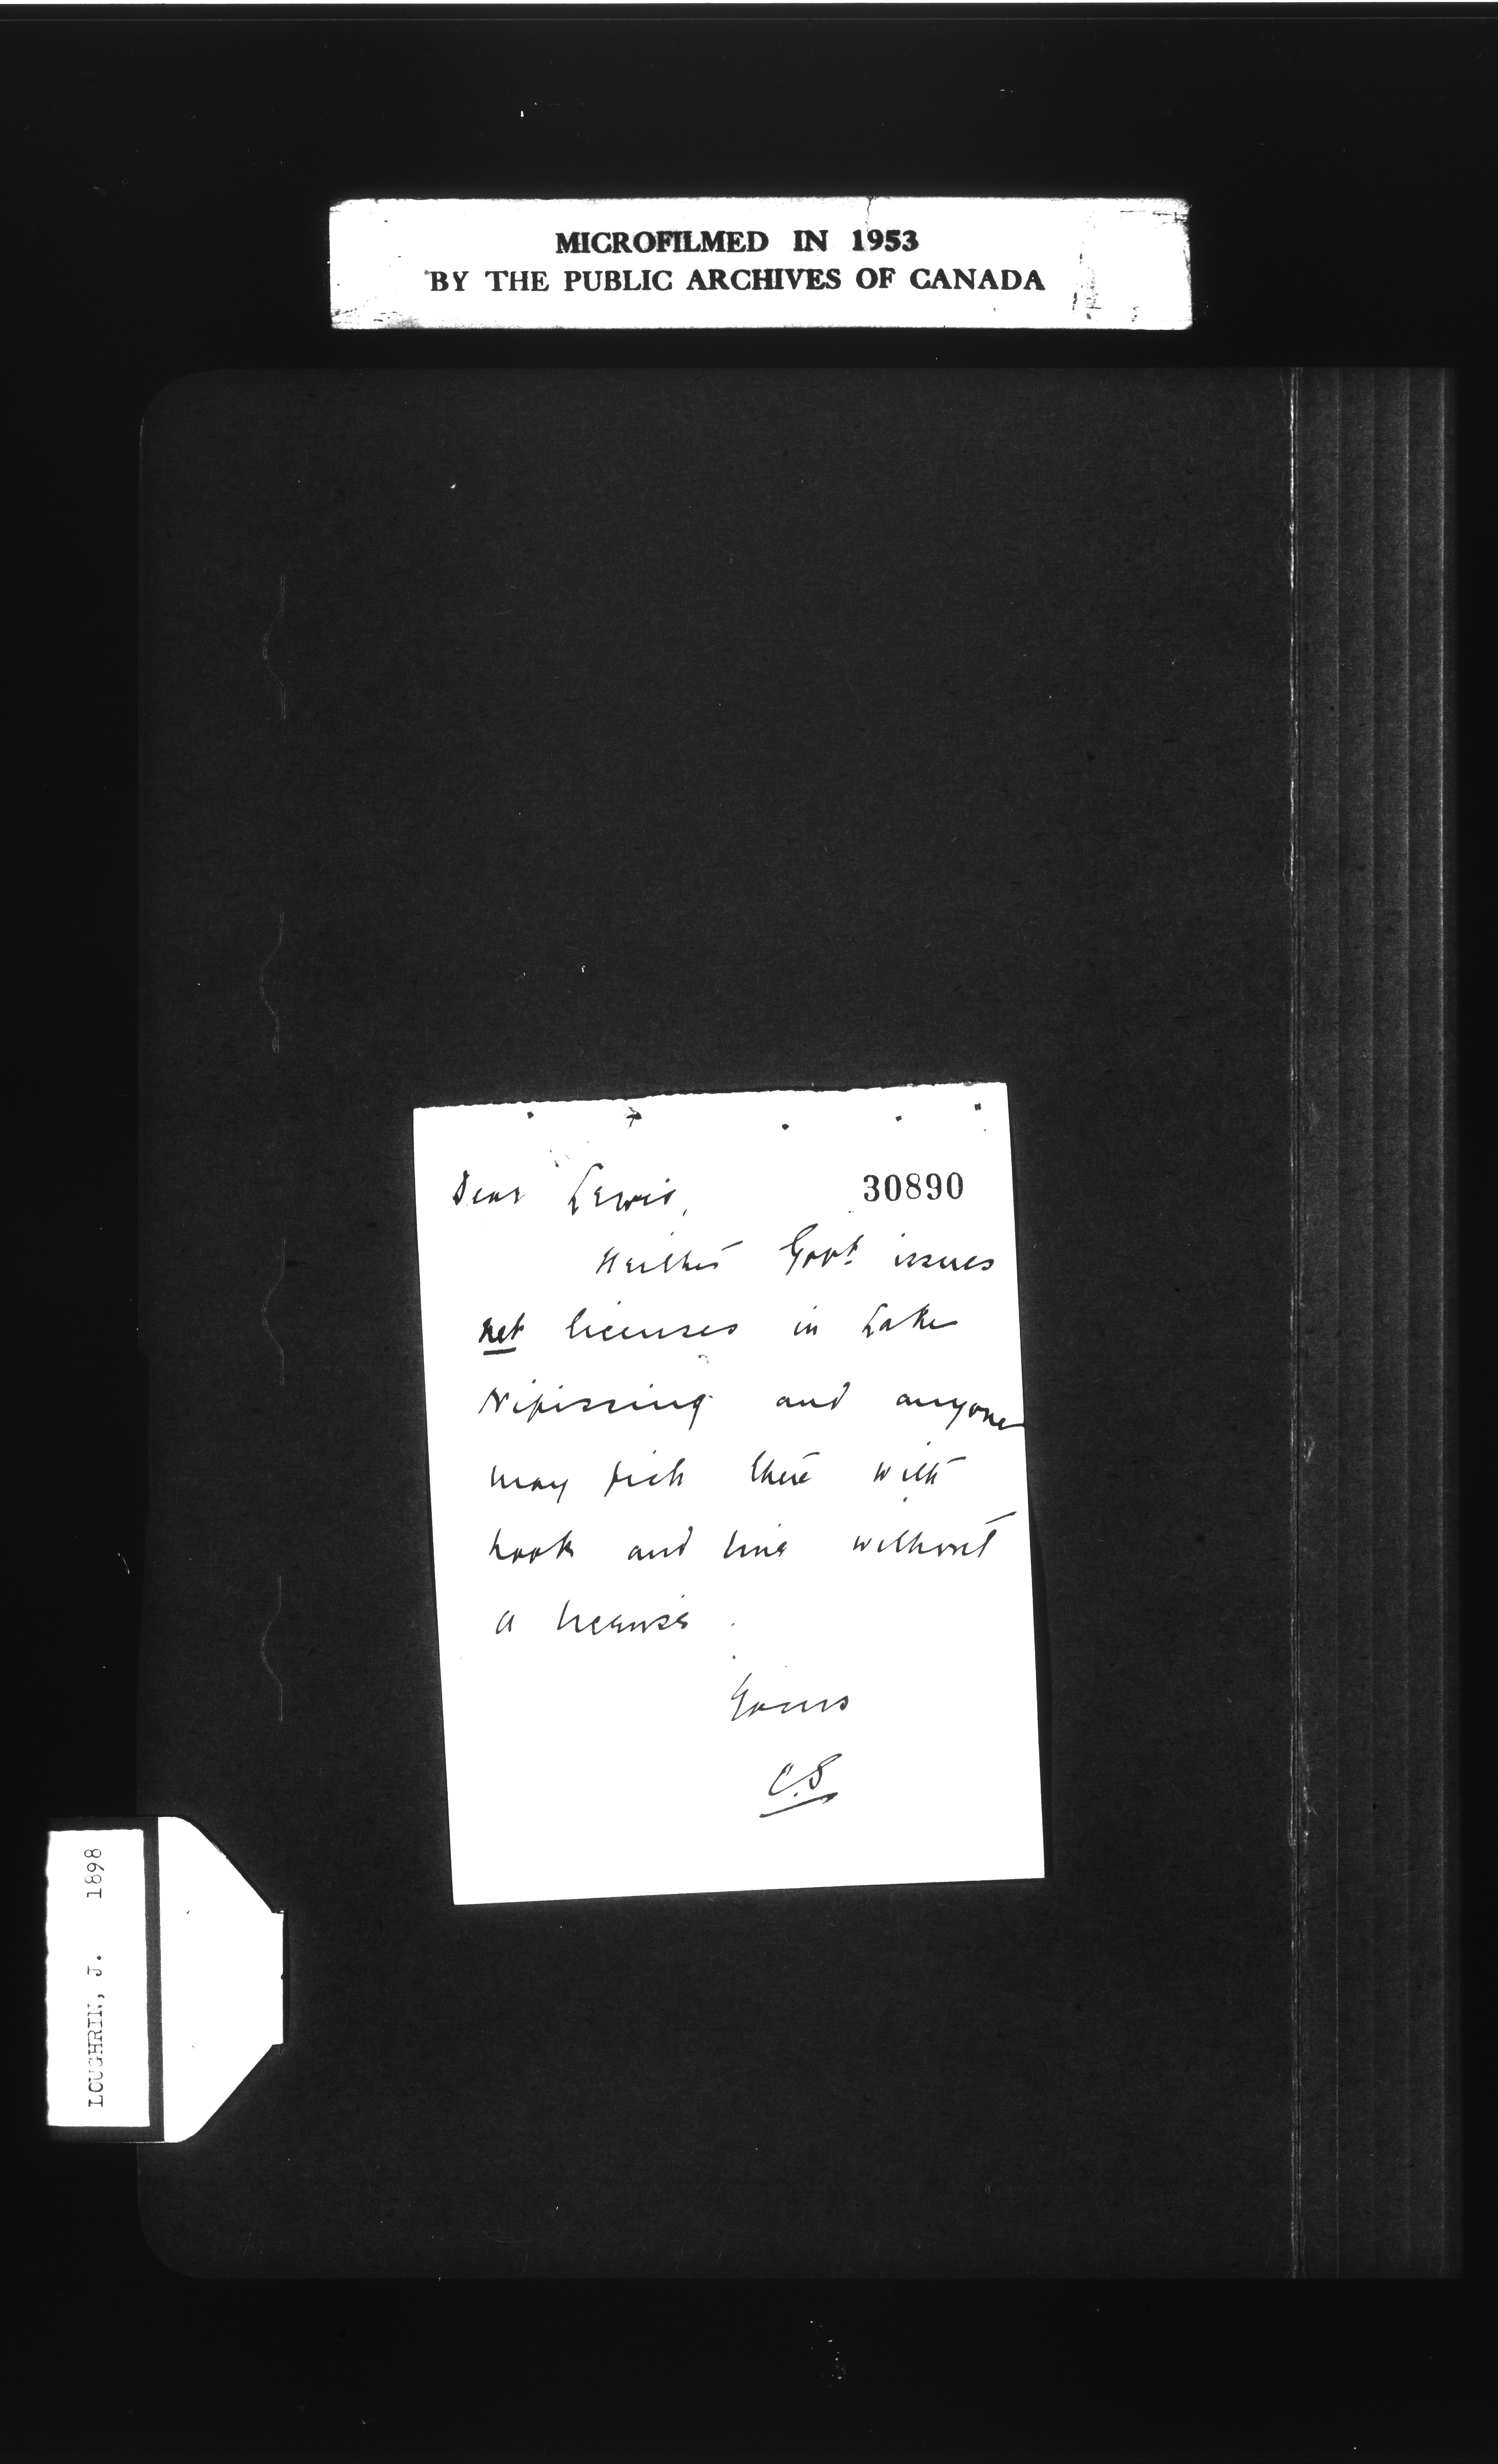 MICROFILMED IN 1953
BY THE PUBLIC ARCHIVES OF CANADA
30890
Dear Lewis,
Neither Govt. issues
net licenses in Lake
Nipissing and anyone
may fish there with
hook and line without
a license.
Yours
C.S
LOUGHRIN, J. 1898